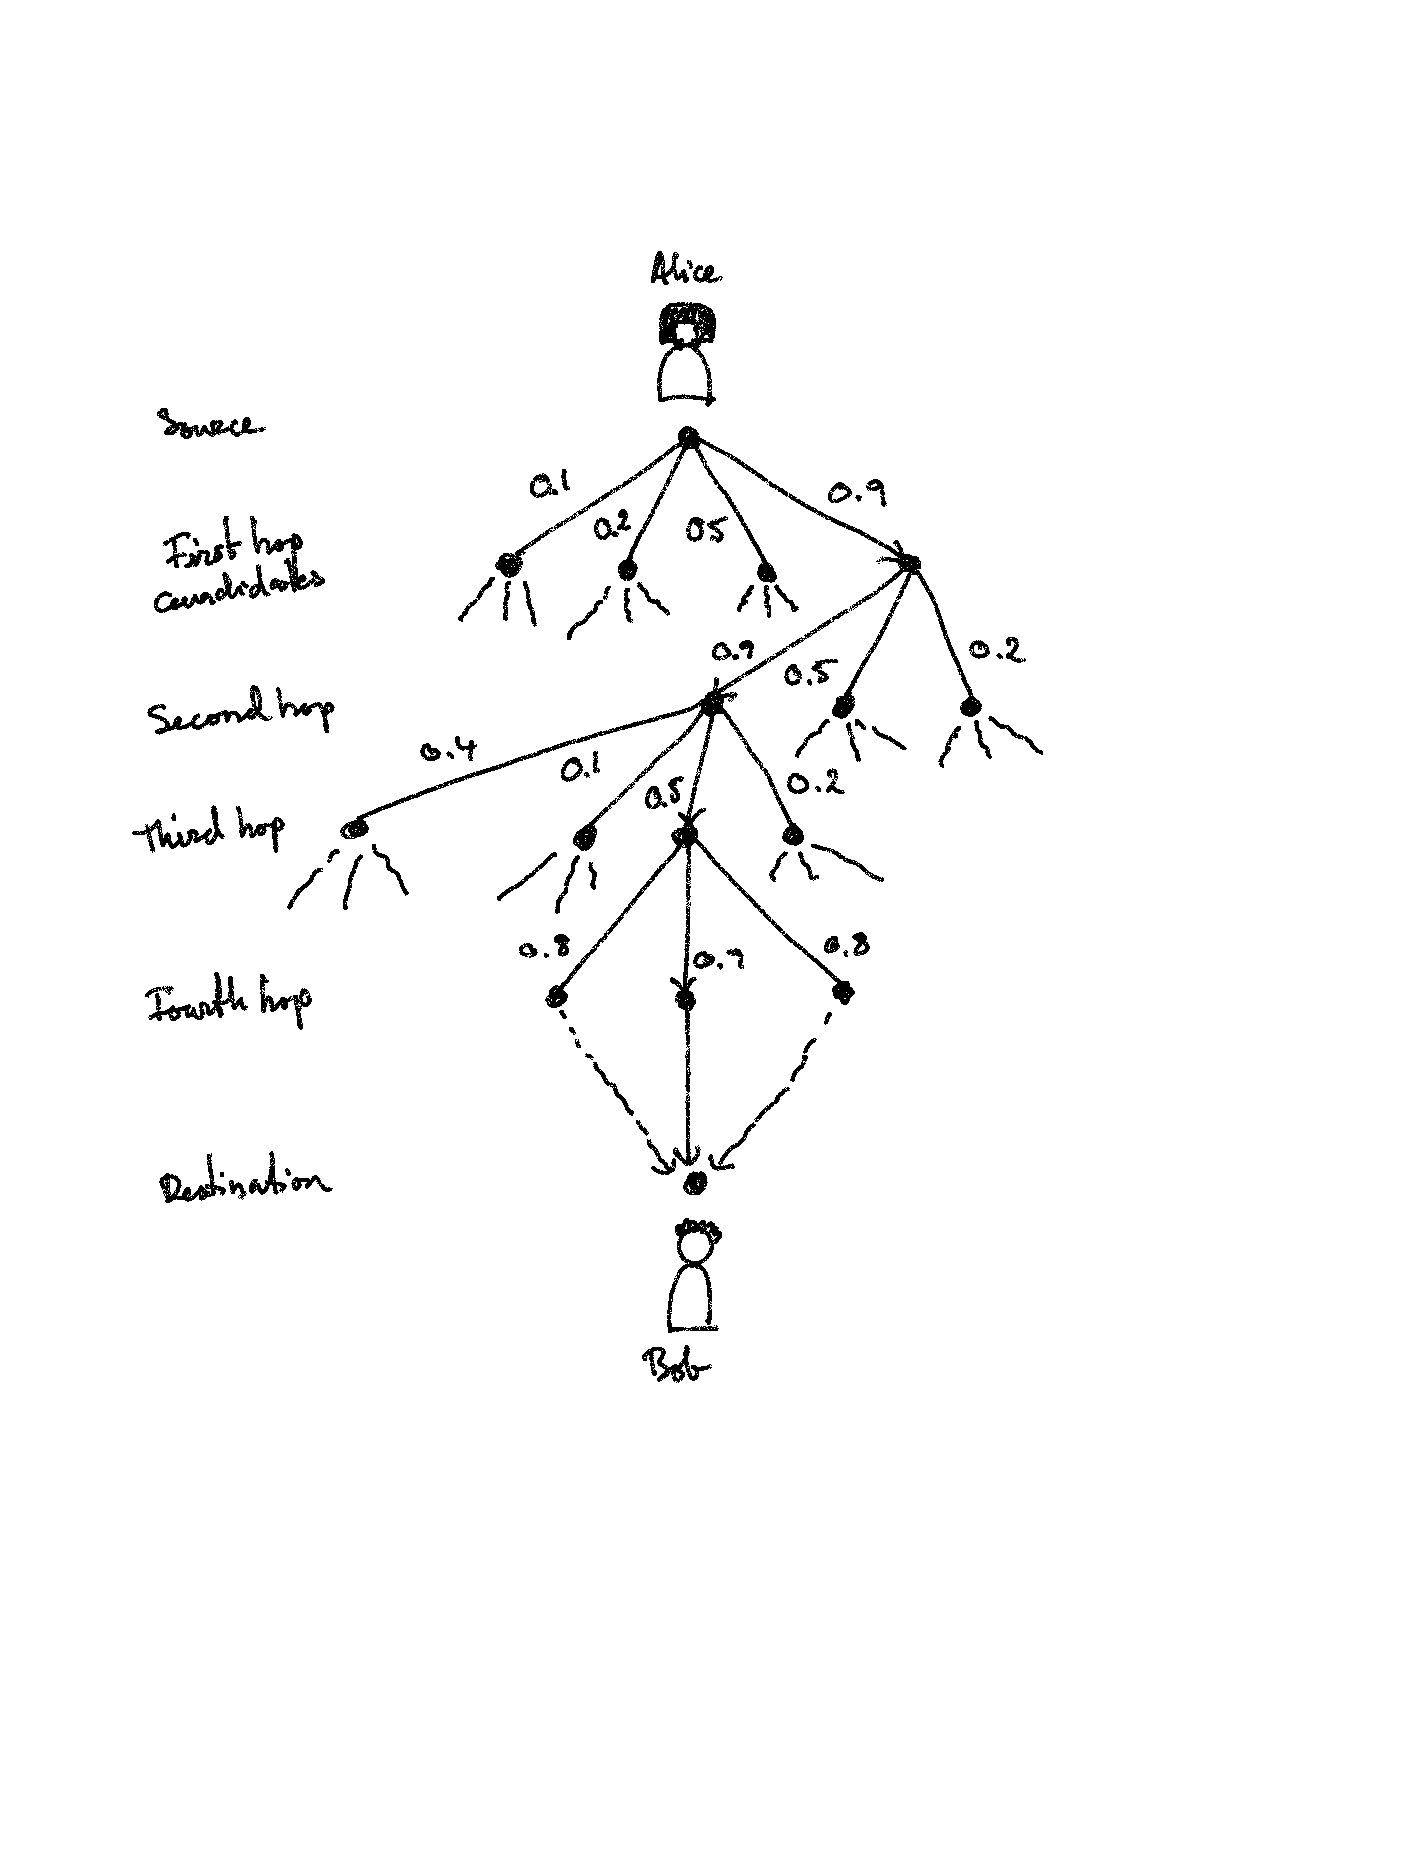 Alice
Source
0.1
0.2
0.5
0.9
First hop
candidates
0.9
0.5
0.2
Second hop
0.4
0.1
0.5
0.2
Third hop
0.8
0.9
0.8
Fourth hop
Destination
Bob